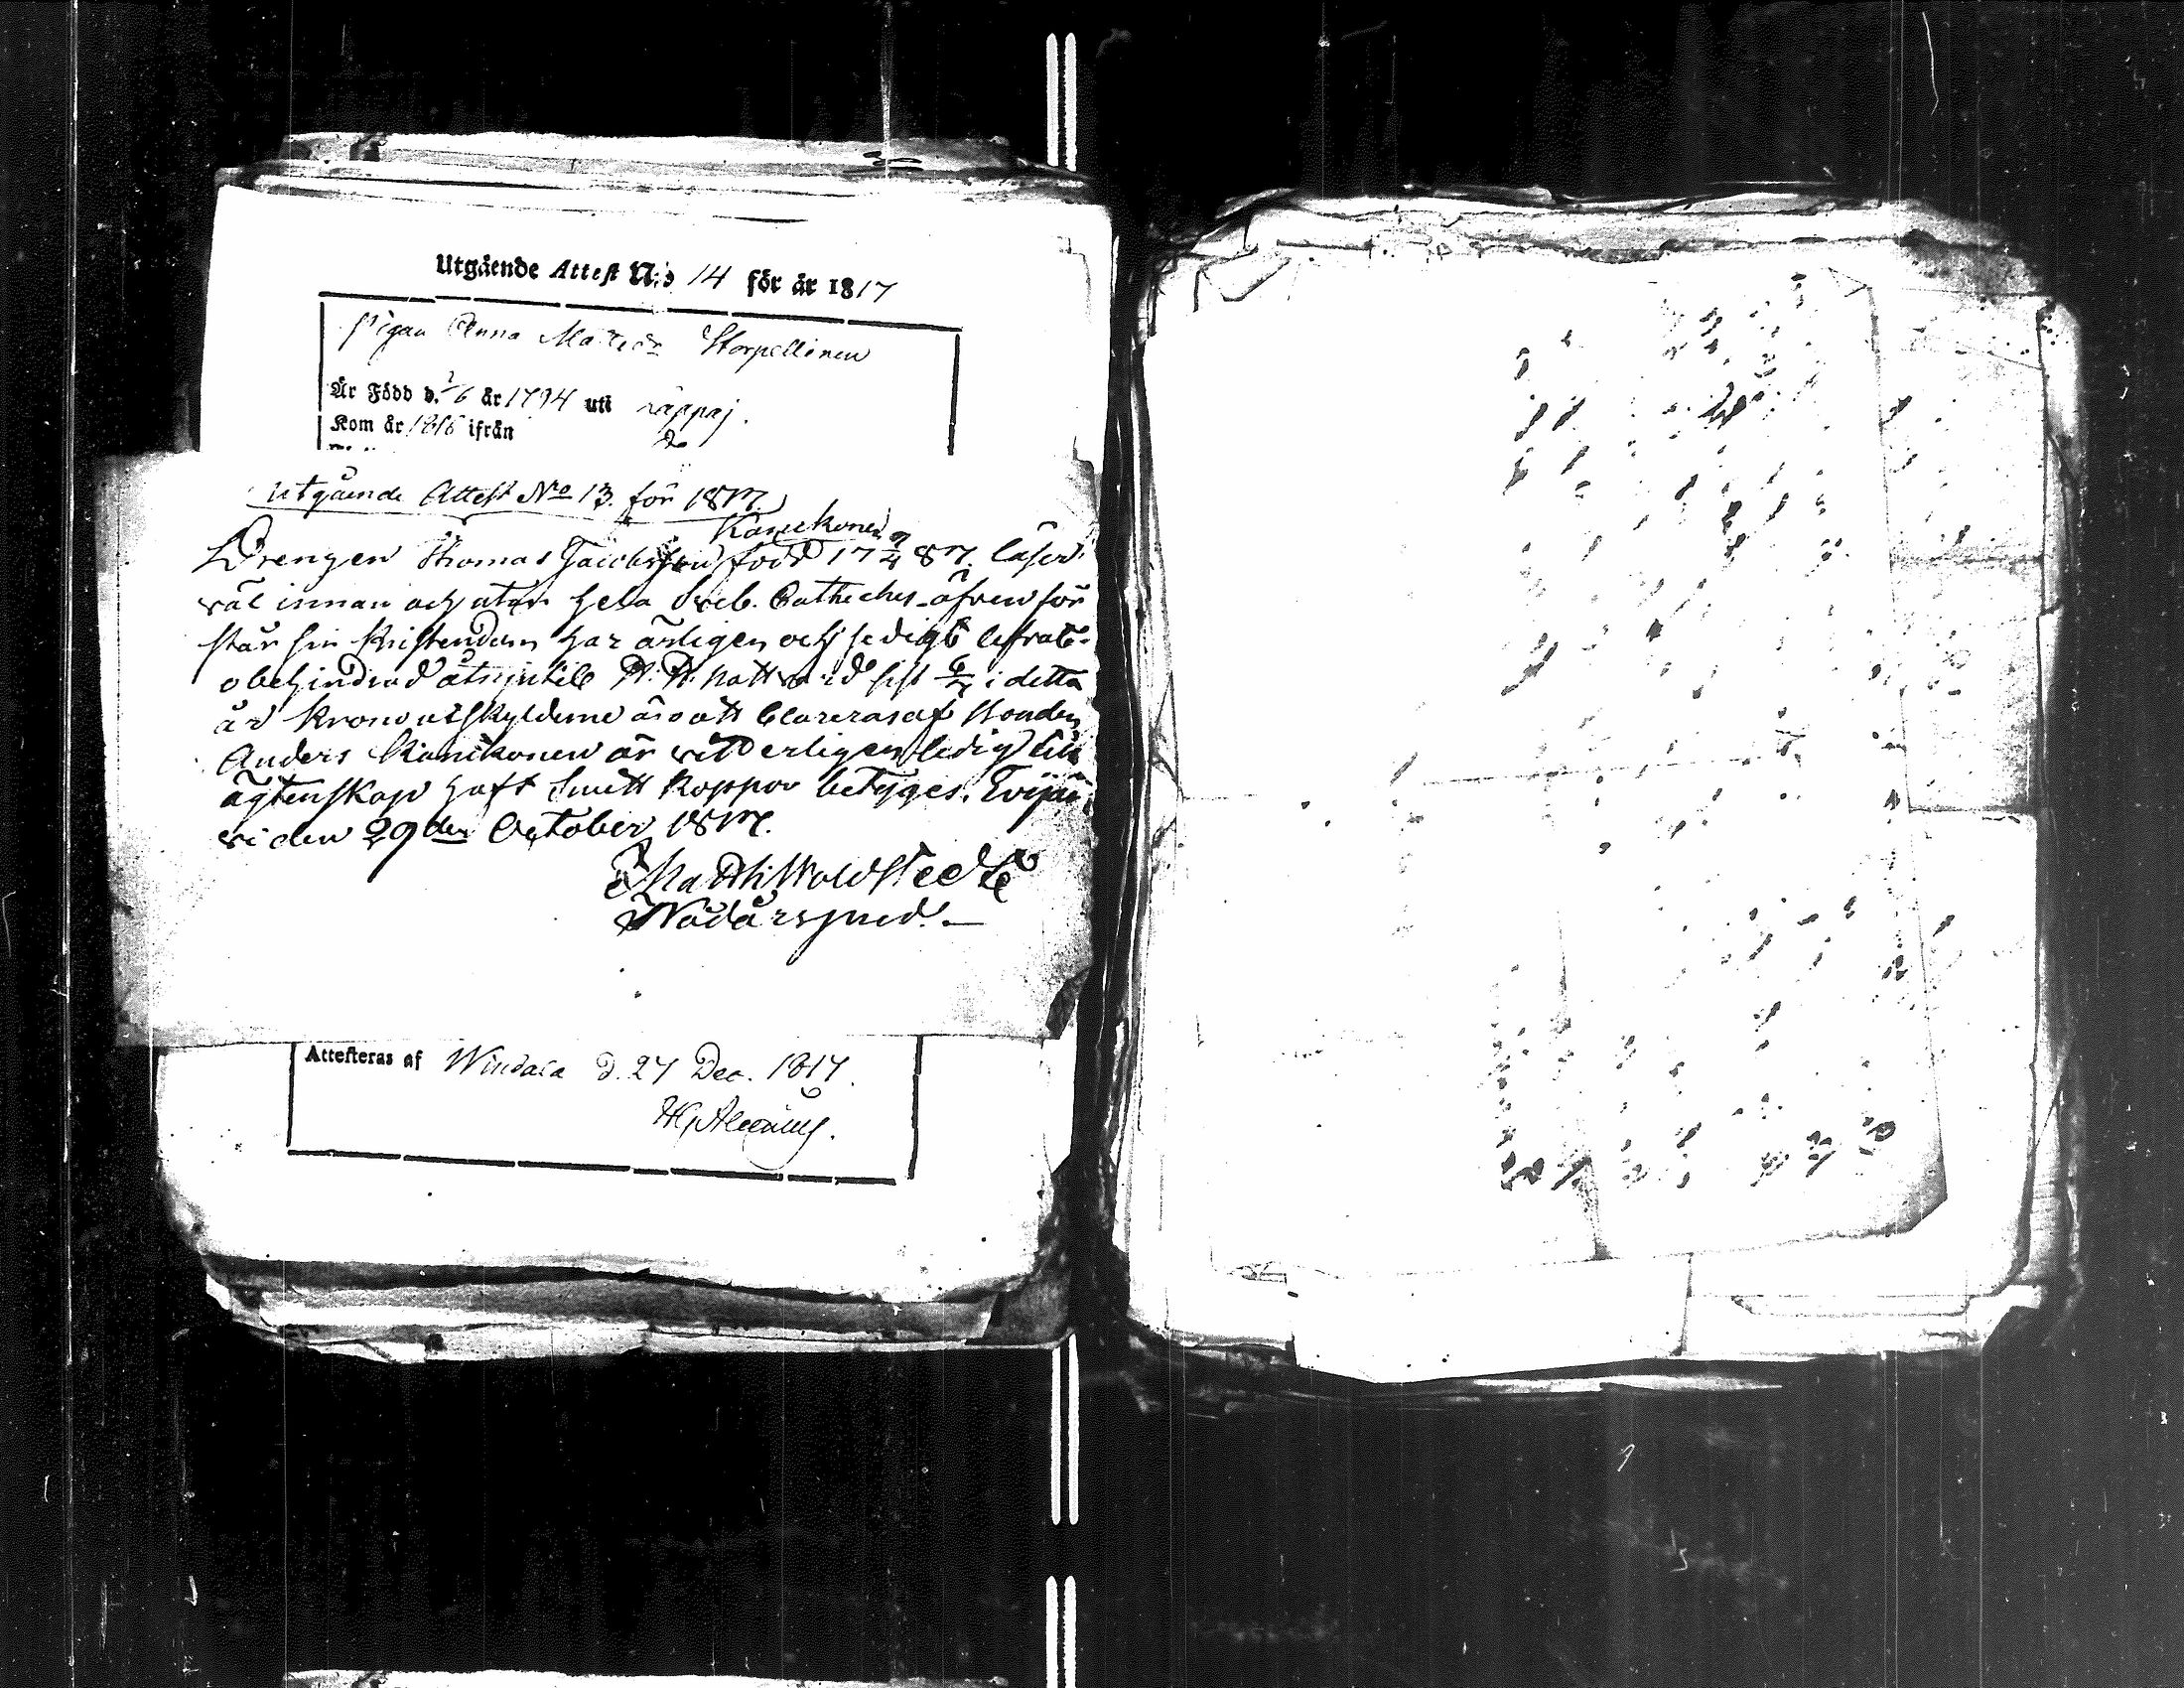 Utgående Attest N:o 14 för år 1817
Pigan Anna Mattsdr Storpellinen
Är Född d. 2/6 år 1794 uti räppaj.
Kom år 1816 ifrån do
Utgående Attest No 13. för 1817.
Kanikonen
Drengen Thomas Jacobsson född 17 2/4 87. läser
väl innan och utan hela Sveb. Catheches. äfven för
står sin Kristendom har ärligen och sedigt lefvat
obehindrad åtnjutit H. H. Nattvard sist 6/7 i detta
år Krono utskylderne äro att Clareras af Bonden
Anders Kanikonen är vitterligen ledig till
ägtenskap haft Smitt Koppor betyges.
vi den 29de October 1817.
Math: Woldstedt
Nådårspred.
Attesteras af Windala d. 27 Dec. 1817.